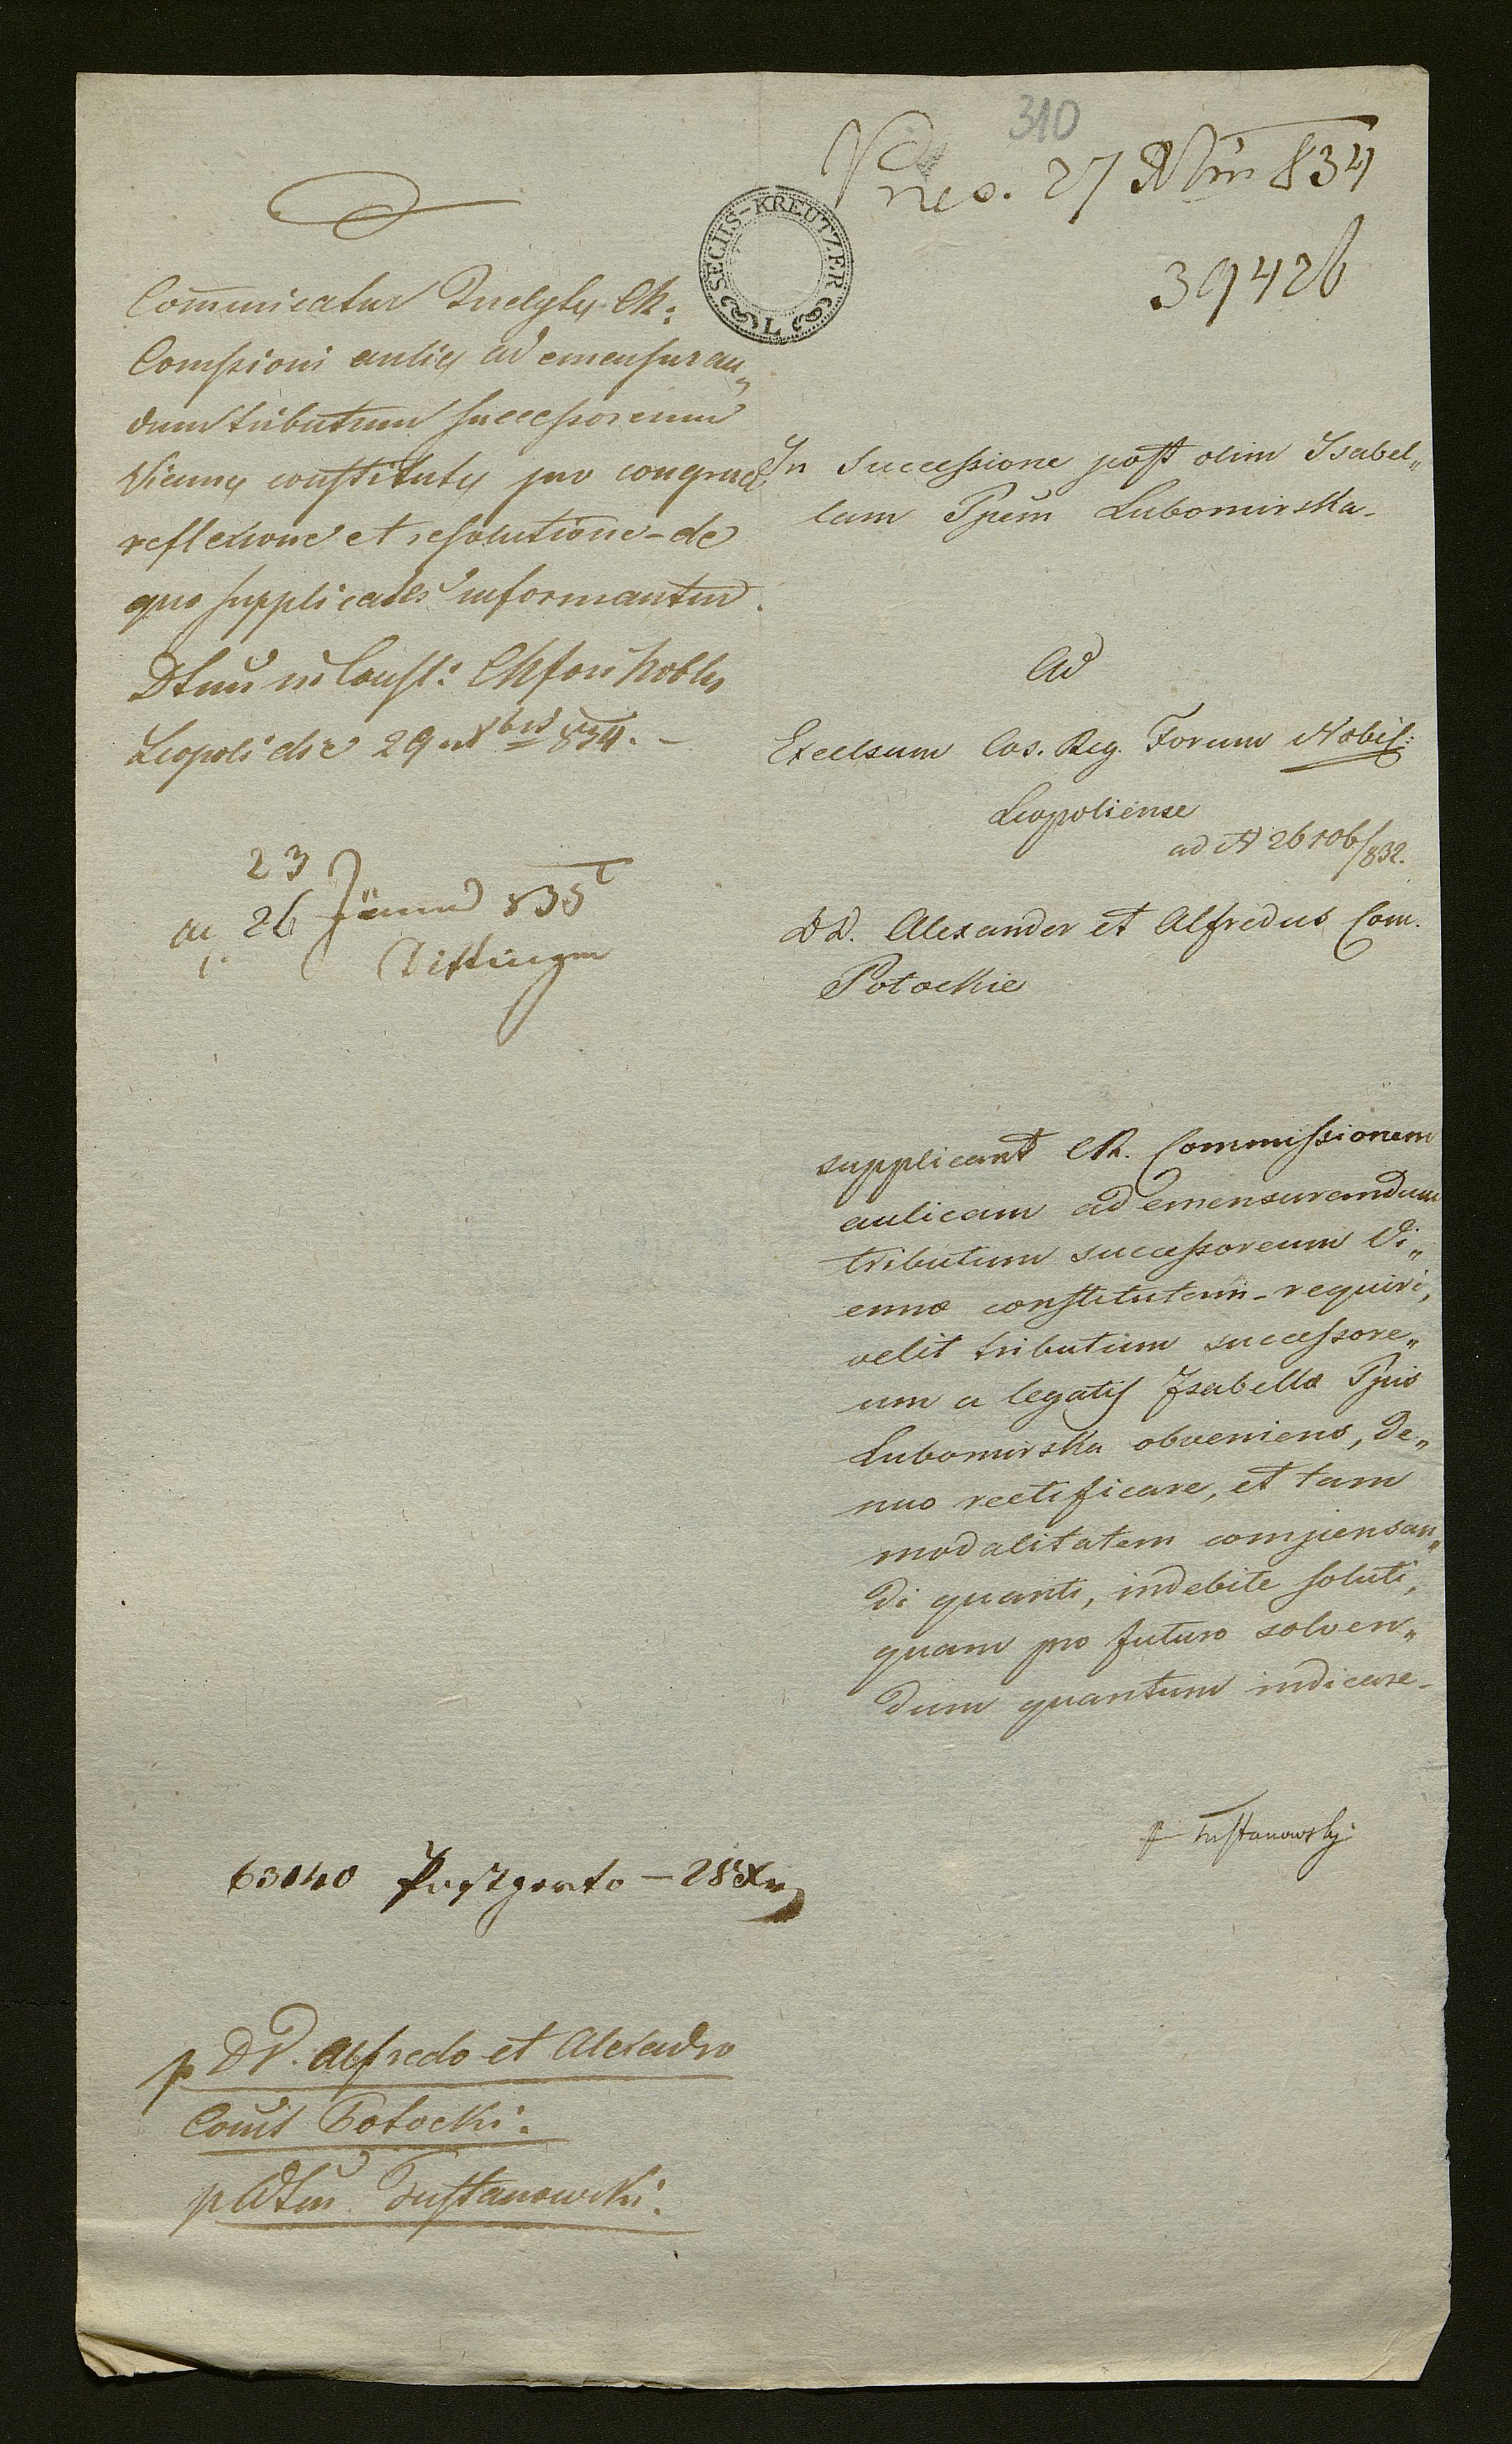 310
27 834
39426
SECHS-KREUTZER
L
Com̄unicatur Inclytę CR:
Comssioni aulicę ad emensuran„
dum tributum successoreum
Viennę constitutę pro congrua
reflexione et resolutione – de
quo supplicantes informantur.
Leopoli die 29 834. –
23
26 835
In Successione post olim Isabel„
lam Lubomirska –
Ad
Excelsum Cas. Reg. Forum Nobil:
Leopoliense
ad N 26106/832.
DD. Alexander et Alfredus Com.
Potockie
supplicant CR. Commissionem
aulicam ad emensurandum
tributum successoreum Vi„
enna constitutam – requiri,
velit tributum successore„
um a legatis Isabella Ppis
Lubomirska obveniens, de„
nuo rectificare, et tam
modalitatem compensan„
di quanti, indebite soluti,
quam pro futuro solven„
dum quantum indicare –
Tustanowski
63040 Postporto – 28 Xr
p DD. Alfredo et Alexandro
Comit Potocki.
p Tustanowski.